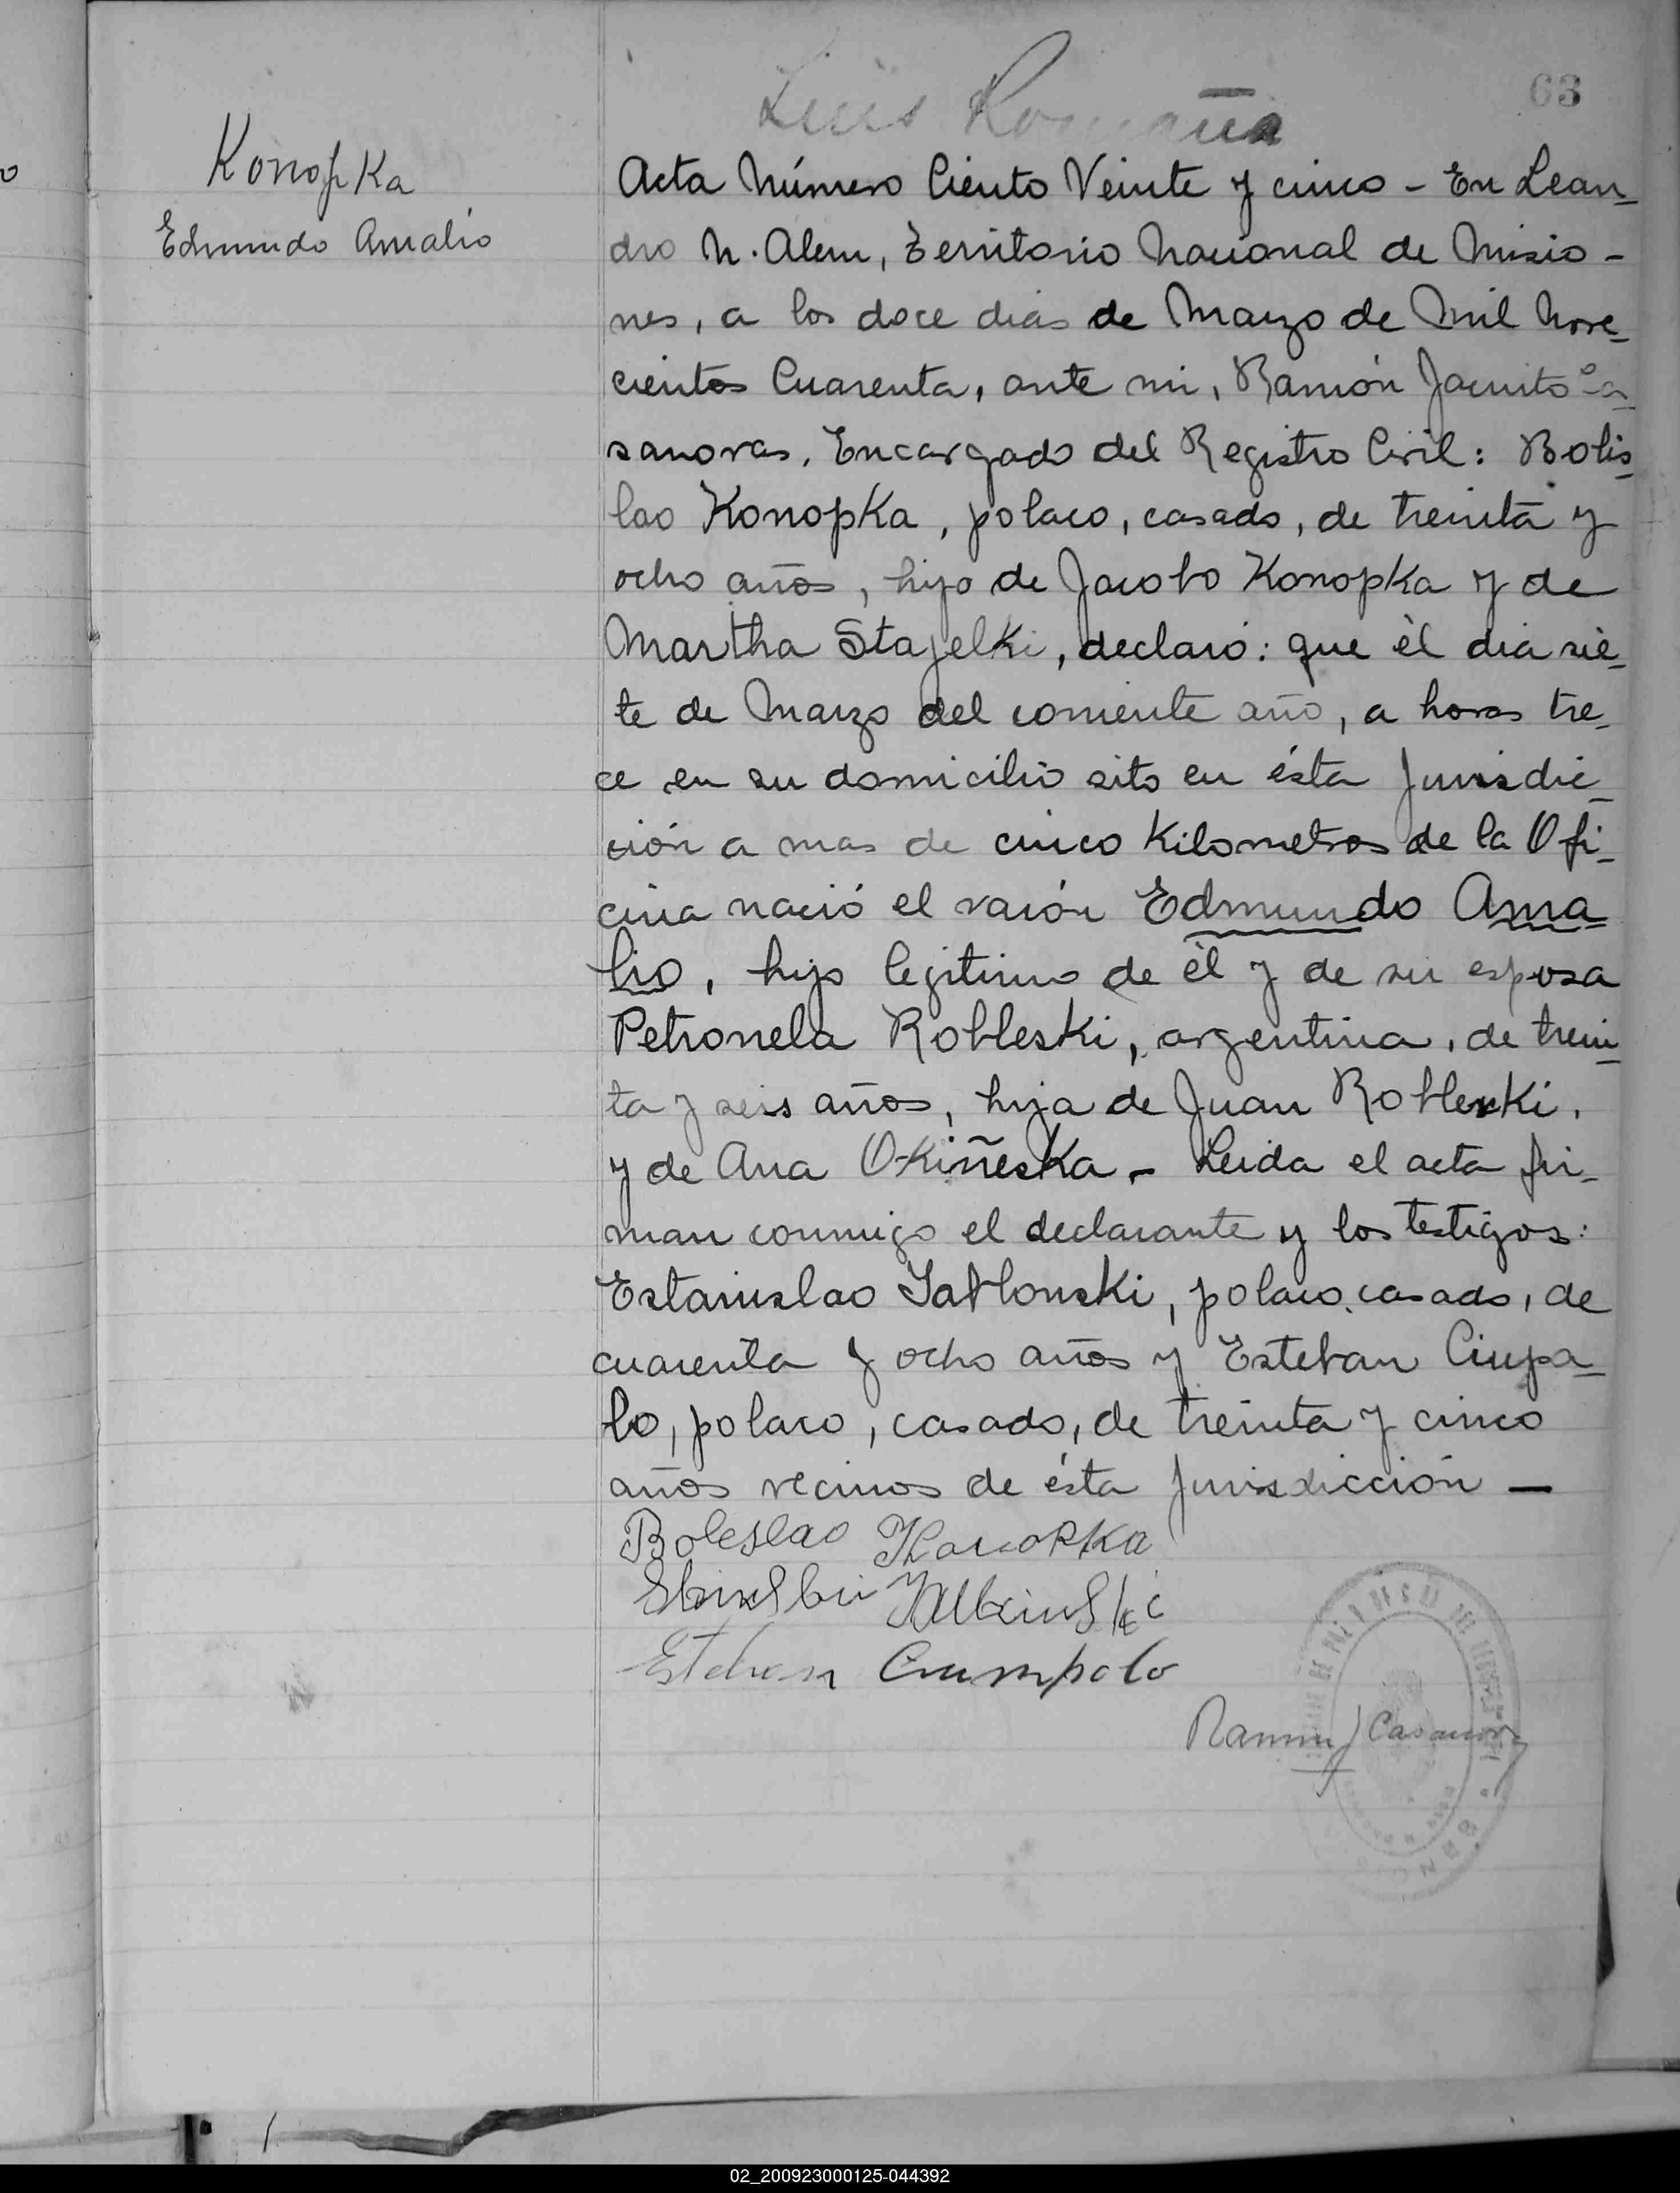 Luis Romaña
63
Konopka
Edmundo Amalio
Acta Número Ciento Veinte y cinco - En Lean-
dro N. Alem, Territorio Nacional de Misio-
nes, a los doce dias de Marzo de Mil Nove-
cientos Cuarenta, ante mi, Ramón Jacinto Ca-
sanovas, Encargado del Registro Civil: Bolis-
lao Konopka, polaco, casado, de treinta y
ocho años, hijo de Jacobo Konopka y de
Martha Stajelki, declaró: que èl dia sie-
te de Marzo del corriente año, a horas tre-
ce en su domicilio sito en ésta Jurisdic-
ción a mas de cinco Kilometros de la Ofi-
cina nació el varón Edmundo Ama-
lio, hijo legitimo de èl y de su esposa
Petronela Robleski, argentina, de trein-
ta y seis años, hija de Juan Robleski,
y de Ana Okiñeska - Leida el acta fir-
man conmigo el declarante y los testigos:
Estanislao Jablonski, polaco, casado, de
cuarenta y ocho años y Esteban Ciupa-
lo, polaco, casado, de treinta y cinco
años vecinos de ésta Jurisdicción —
Boleslao Konopka
Esteban
Ramon J Casanovas
02_200923000125-044392